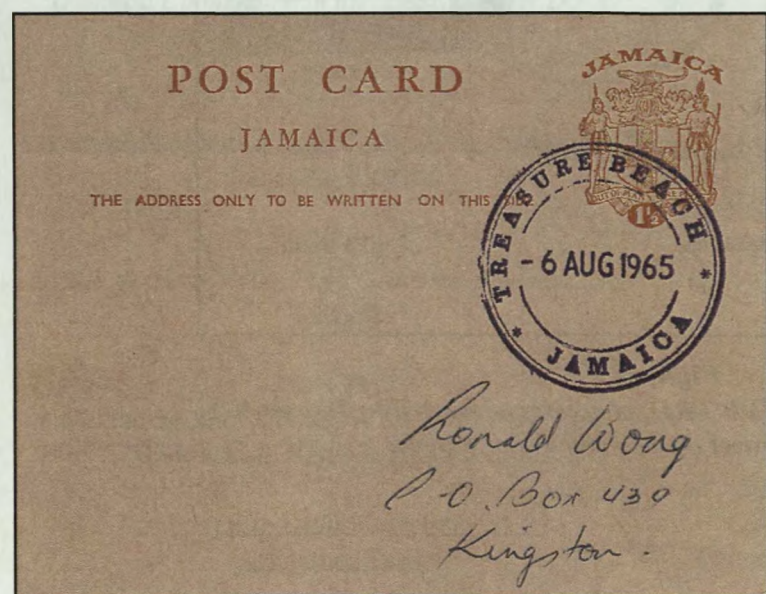 POST CARD
JAMAICA
THE ADDRESS ONLY TO BE WRITTEN ON THIS
JAMAICA
TREASURE BEACH
- 6 AUG 1965
* JAMAICA *
Ronald Wong
P.O. Box 430
Kingston.